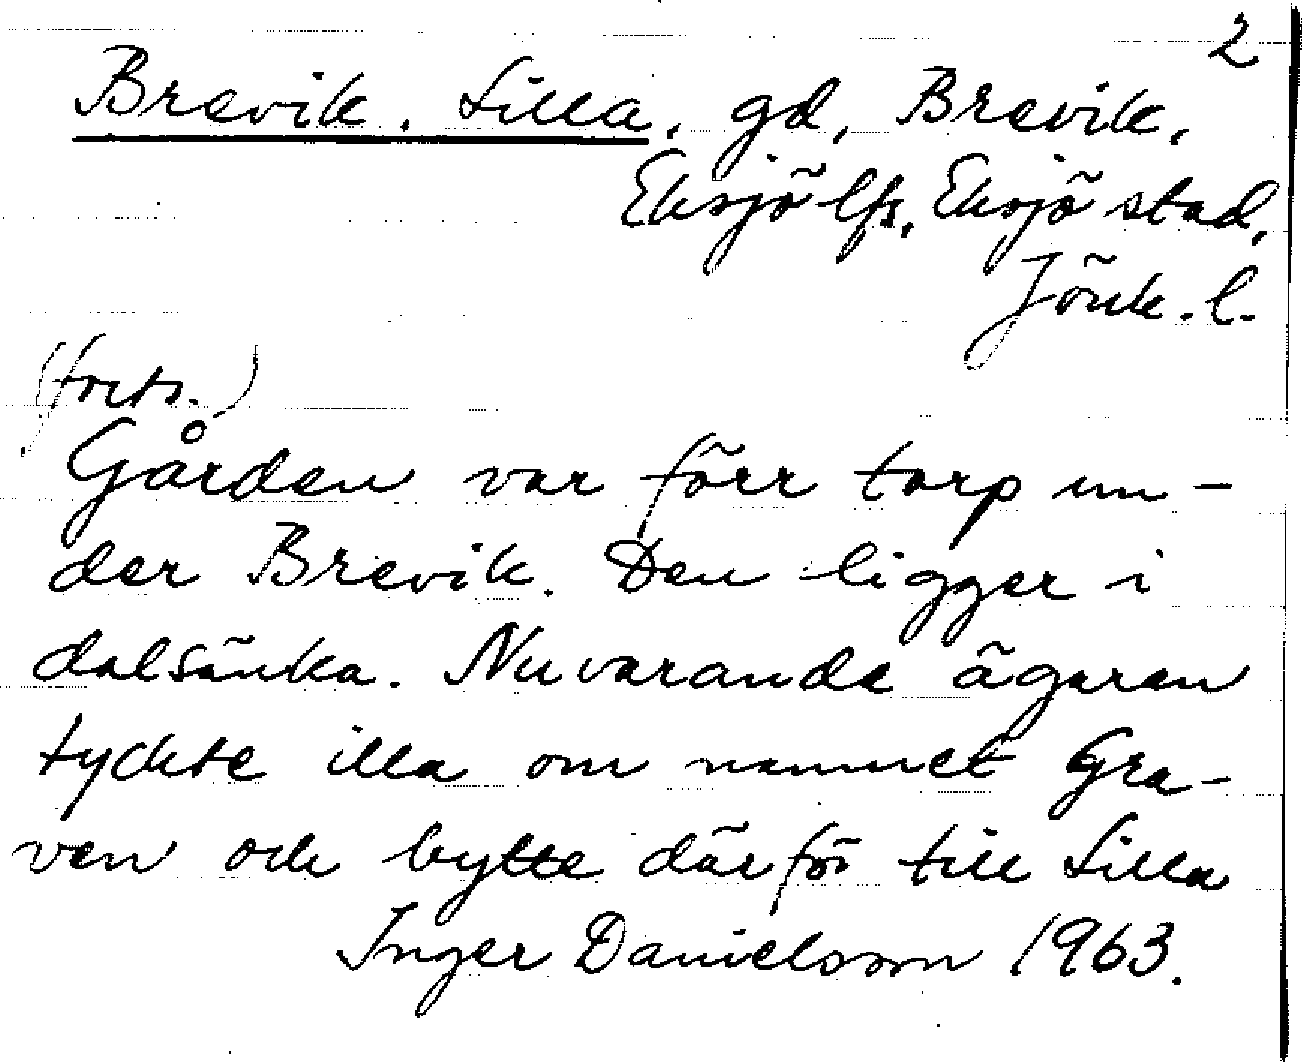 2
Brevik, Lilla, gd, Brevik,
Eksjö lfs, Eksjö stad,
Jönk. l.
(forts.)
Gården var förr torp un-
der Brevik. Den ligger i
dalsänka. Nuvarande ägaren
tyckte illa om namnet Gra-
ven och bytte därför till Lilla
Inger Danielsson 1963.